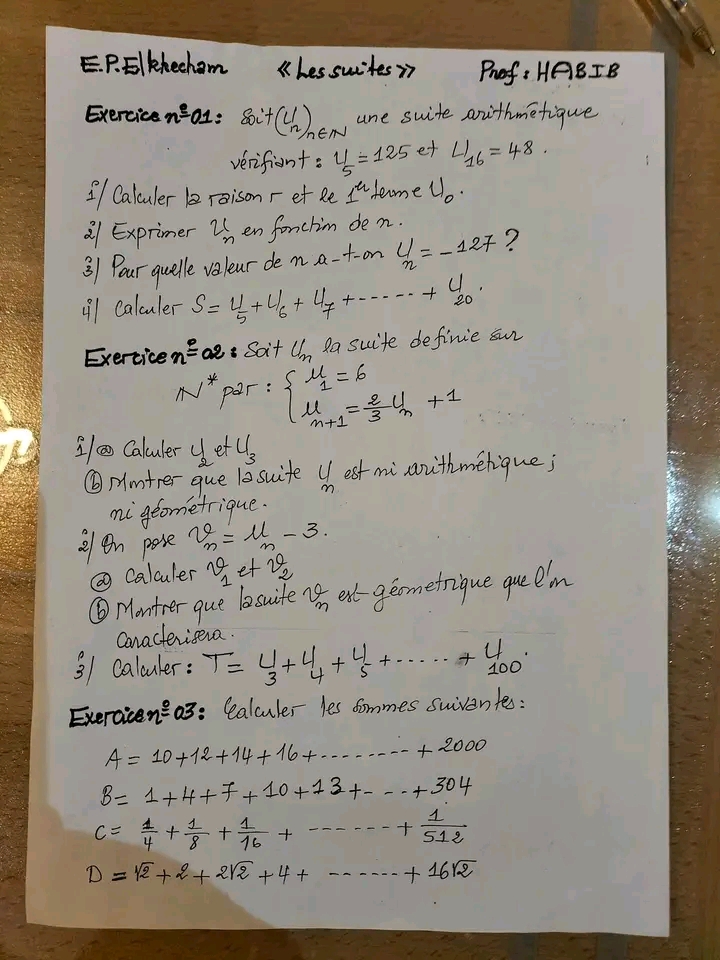 E.P.Elkhecham « Les suites » Prof: HABIB
Exercice n°01: Soit (U_n)_{n∈ℕ} une suite arithmétique
vérifiant: U_5 = 125 et U_16 = 48.
1°/ Calculer la raison r et le 1er terme U_0.
2°/ Exprimer U_n en fonction de n.
3°/ Pour quelle valeur de n a-t-on U_n = -127 ?
4°/ Calculer S = U_5 + U_6 + U_7 + ------ + U_20.
Exercice n°02: Soit U_n la suite definie sur
ℕ* par: { U_1 = 6
U_{n+1} = 2/3 U_n + 1
1°/ ⓐ Calculer U_2 et U_3
ⓑ Montrer que la suite U_n est ni arithmétique ;
ni géométrique.
2°/ On pose V_n = U_n - 3.
ⓐ Calculer V_1 et V_2
ⓑ Montrer que la suite V_n est géometrique que l'on
caracterisera.
3°/ Calculer: T = U_3 + U_4 + U_5 + ------ + U_100.
Exercice n°03: Calculer les sommes suivantes:
A = 10+12+14+16+--------+2000
B = 1+4+7+10+13+- --+304
C = 1/4 + 1/8 + 1/16 + ------- + 1/512
D = √2 + 2 + 2√2 + 4 + ------- + 16√2